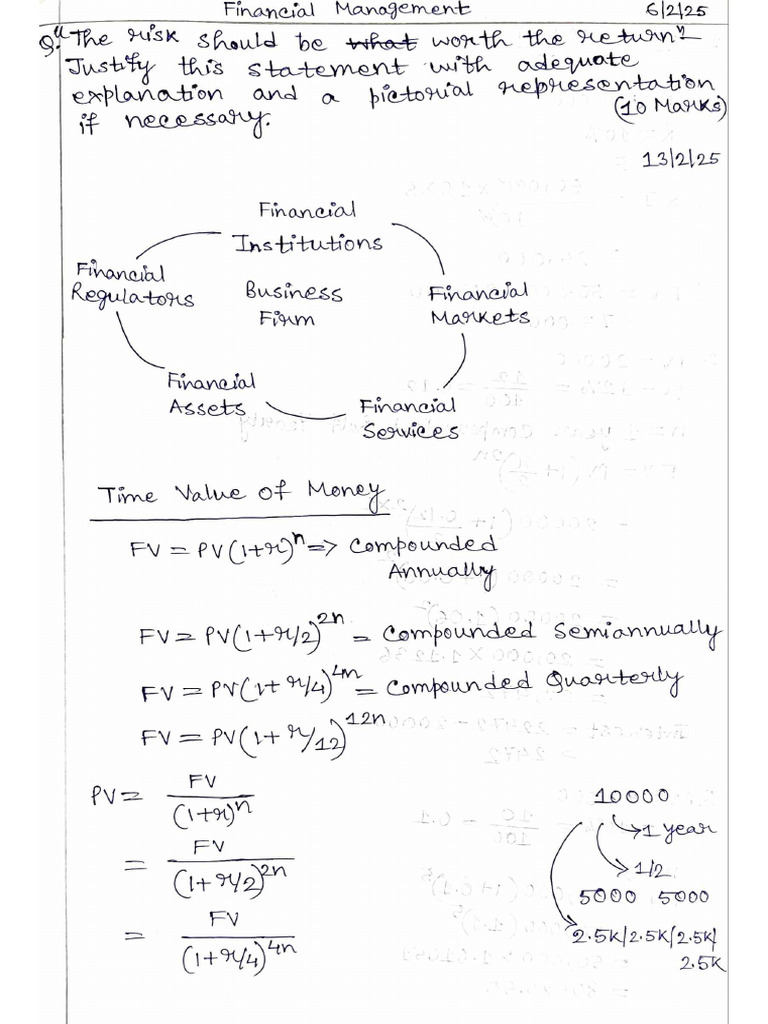 Financial Management 6/2/25
Q. "The risk should be what worth the return"
Justify this statement with adequate
explanation and a pictorial representation
if necessary. (10 Marks)
13/2/25
Financial
Institutions
Financial
Regulators
Business
Firm
Financial
Markets
Financial
Assets
Financial
Services
Time Value of Money
FV = PV(1+r)^n => Compounded
Annually
FV = PV(1+r/2)^2n = Compounded Semiannually
FV = PV(1+r/4)^4n = Compounded Quarterly
FV = PV(1+r/12)^12n
PV = FV/(1+r)^n
= FV/(1+r/2)^2n
= FV/(1+r/4)^4n
10000
1 year
1/2
5000 5000
2.5K/2.5K/2.5K/
2.5K